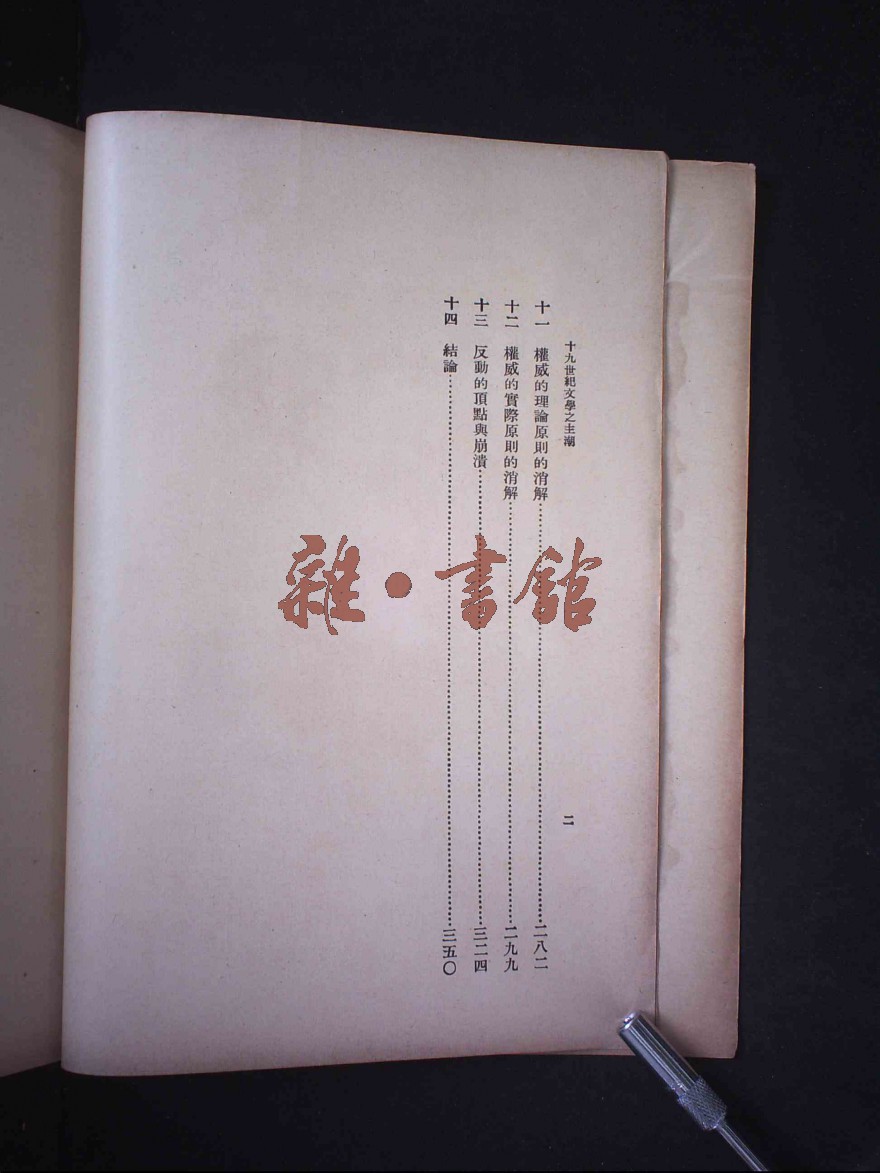 十九世紀文學之主潮
二
十一 權威的理論原則的消解……二八二
十二 權威的實際原則的消解……二九九
十三 反動的頂點與崩潰……三二四
十四 結論……三五〇
雜·書館